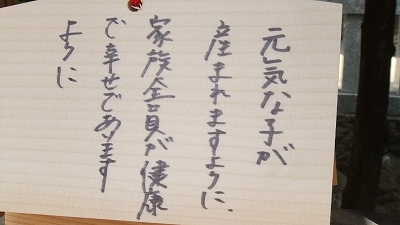 元気な子が
産まれますように、
家族全員が健康
で幸せであります
ように